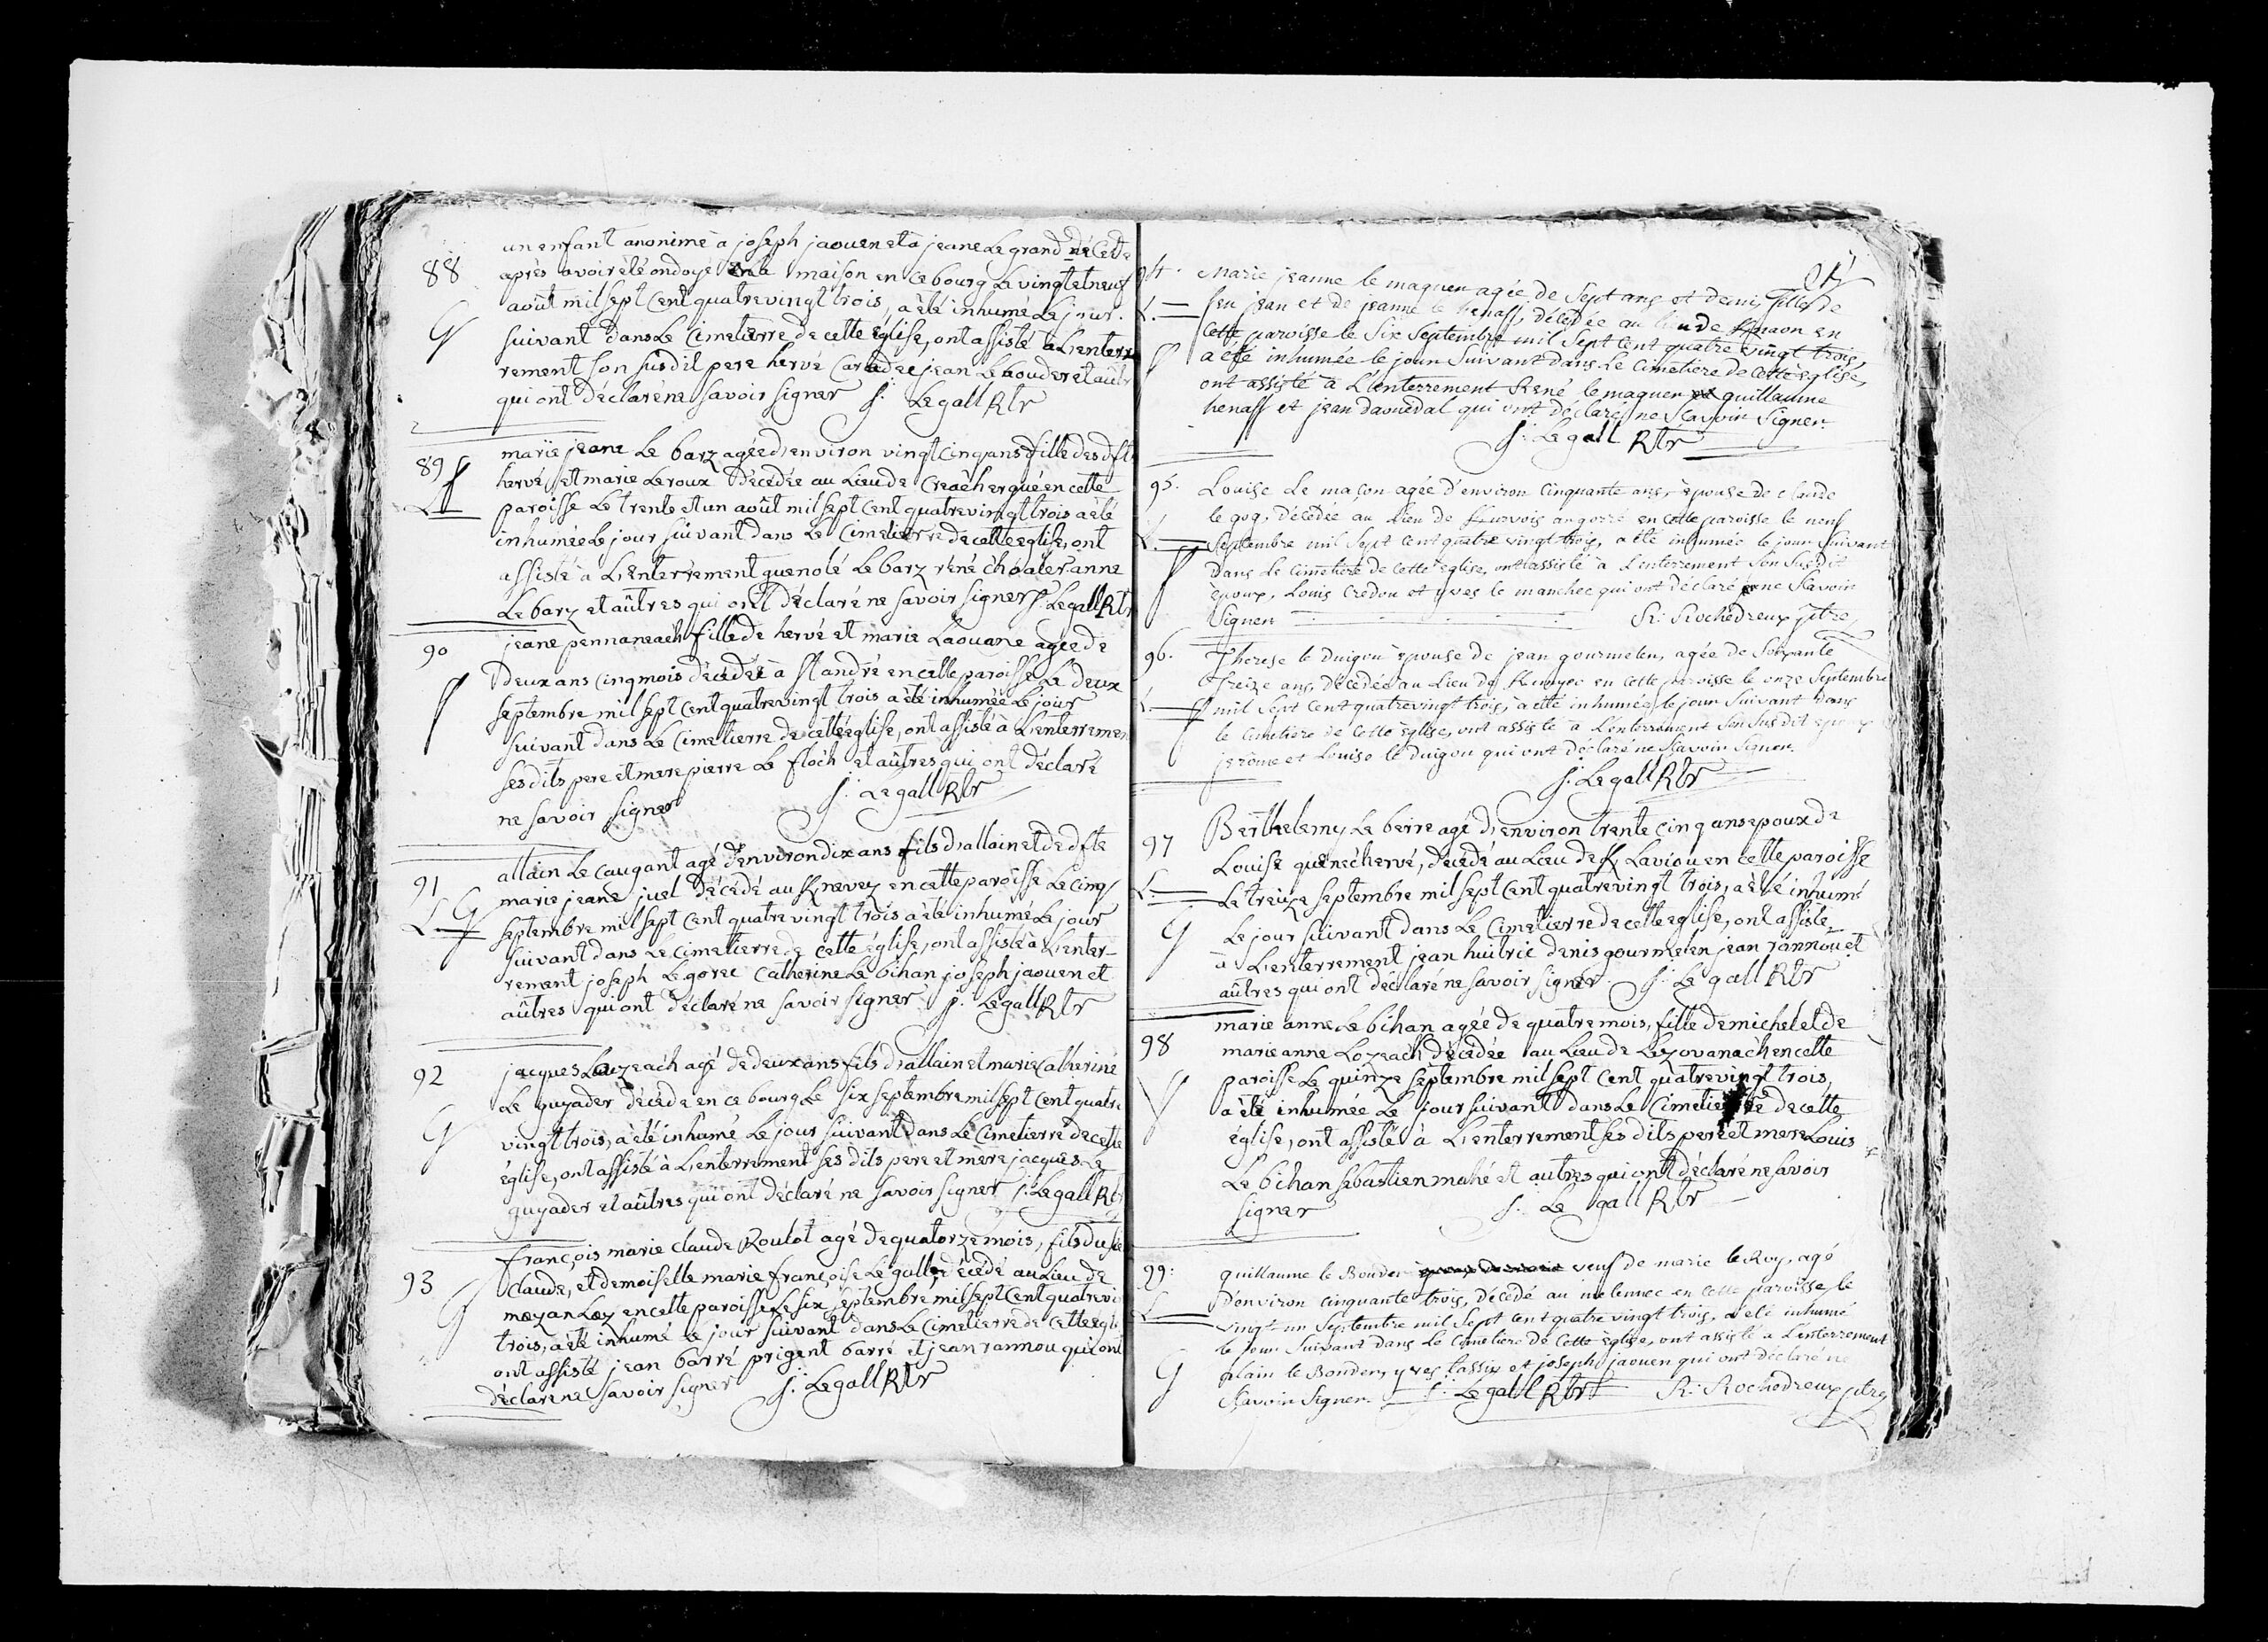 88
un enfant anonime à joseph jaouen et à jeane Le grand décédé
après avoir été ondoyé en la maison en ce bourg Le vingt et neuf
août mil sept cent quatre vingt trois, a été inhumé Le jour
G suivant dans Le Cimetierre de cette église, ont assisté à L'enter
rement son susdit pere hervé Caradec jean Le bouder et autr
qui ont déclaré ne savoir signer J: Le gall Rtr
89
marie jeane Le barz agée d'environ vingt cinq ans fille des dfts
hervé et marie Le roux décédée au Lieu de Creac'herqué en cette
L paroisse Le trente et un août mil sept cent quatre vingt trois a été
inhumée Le jour suivant dans Le Cimetierre de cette église, ont
assisté à L'enterrement guenolé Le barz réné c'hoaler anne
Le barz et aûtres qui ont déclaré ne savoir signer J: Le gall Rtr
90
jeane pennaneac'h fille de hervé et marie Laouane agée de
deux ans cinq mois décédée à St andré en cette paroisse Le deux
septembre mil sept cent quatre vingt trois a été inhumée Le jour
suivant dans Le Cimetierre de cette église, ont assisté à L'enterremen
ses dits pere et mere pierre Le floc'h et aûtres qui ont déclaré
ne savoir signer J: Le gall Rtr
91
allain Le Caugant agé d'environ dix ans fils d'allain et de dfte
marie jeane juel décédé au Knevez en cette paroisse Le cinq
L G septembre mil sept cent quatre vingt trois a été inhumé Le jour
suivant dans Le Cimetierre de cette église, ont assisté à L'enter-
rement joseph Le gorec Catherine Le bihan joseph jaouen et
aûtres qui ont déclaré ne savoir signer J: Le gall Rtr
92
jacques Lauzeac'h agé de deux ans fils d'allain et marie Catherine
Le guyader décédé en ce bourg Le six septembre mil sept cent quatre
G vingt trois, a été inhumé Le jour suivant dans Le Cimetierre de cette
église, ont assisté à L'enterrement ses dits pere et mere jacques Le
guyader et aûtres qui ont déclaré ne savoir signer J: Le gall Rtr
93
françois marie Claude Roulot agé de quatorze mois, fils du
Claude, et demoiselle marie françoise Le gall décédé au Lieu de
G en cette paroisse Le six septembre mil sept cent quatre vi
trois, a été inhumé Le jour suivant dans Le Cimetierre de cette égli
ont assisté jean barré prigent barré et jean rannou qui ont
déclaré ne savoir signer J: Le gall Rtr
94.
Marie jeanne le maguer agée de sept ans et demi, fille de
L. feu jean et de jeanne le henaff, décédée au lieu de en
cette paroisse le six Septembre mil sept cent quatre vingt trois,
a été inhumée le jour suivant dans le cimetiere de cette église,
ont assisté à L'enterrement René le maguer guillaume
henaff et jean daouedal qui ont déclaré ne sçavoir signer
J: Le gall Rtr
95.
Louise le maçon agée d'environ cinquante ans, épouse de claude
le gog, décédée au Lieu de Kurvois an gorré en cette paroisse le neuf
L. Septembre mil sept cent quatre vingt trois, a été inhumée le jour suivant
dans le cimetiere de cette église, ont assisté à L'enterrement son susdit
époux, Louis Credou et yves le manchec qui ont déclaré ne sçavoir
signer R: Rochedreux ptre,
96.
Therese le duigou épouse de jean gourmelen, agée de soixante
treize ans, décédée au Lieu de en cette paroisse le onze Septembre
L. mil sept cent quatre vingt trois, a été inhumée le jour suivant dans
le cimetiere de cette église, ont assisté à L'enterrement son susdit époux
jerôme et Louise le duigou qui ont déclaré ne sçavoir signer.
J: Le gall Rtr
97
Berthelemy Le berre agé d'environ trente cinq ans epoux de
Louise quenec'hervé, décédé au Lieu de K Laviou en cette paroisse
L. Le treize septembre mil sept cent quatre vingt trois, a été inhumé
G Le jour suivant dans Le Cimetierre de cette église, ont assisté
à L'enterrement jean huitric denis gourmelen jean rannou et
aûtres qui ont déclaré ne savoir signer J: Le gall Rtr
98
marie anne Le bihan agée de quatre mois, fille de michel et de
marie anne Lozeac'h décédée au Lieu de Lezovanac'h en cette
paroisse Le quinze septembre mil sept cent quatre vingt trois,
a été inhumée Le jour suivant dans Le Cimetierre de cette
église, ont assisté à L'enterrement ses dits pere et mere Louis
Le bihan sebastien mahé et autres qui ont déclaré ne savoir
signer J: Le gall Rtr
99:
guillaume le Bouder veuf de marie le Roy, agé
L. d'environ cinquante trois, décédé au melennec en cette paroisse, le
vingt-un Septembre mil sept cent quatre vingt trois, a été inhumé
le jour suivant dans le cimetiere de cette église, ont assisté à L'enterrement
G alain le Bouder, yves et joseph jaouen qui ont déclaré ne
sçavoir signer. J: Le gall Rtr R: Rochedreux ptre,